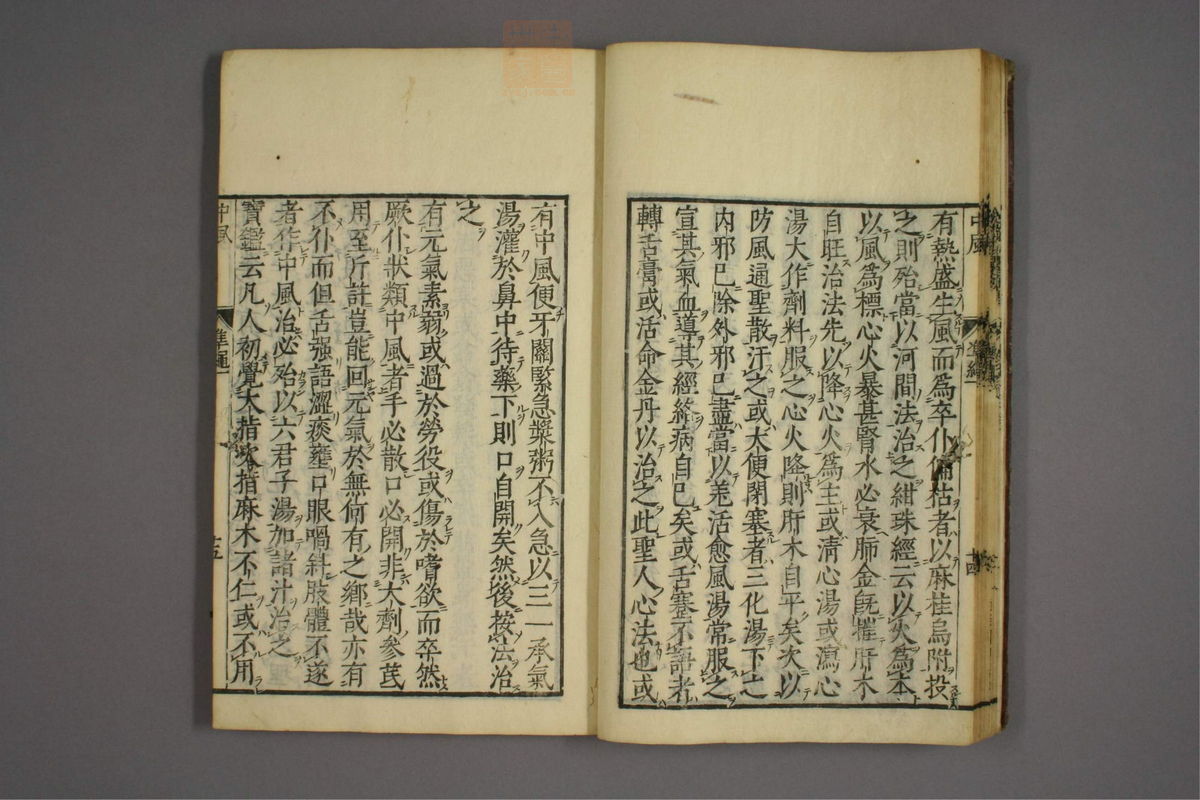 中風
準繩
四
有熱盛生風而爲卒仆偏枯者以麻桂烏附投
之則殆當以河間法治之紺珠經云以火爲本
以風爲標心火暴甚腎水必衰肺金既摧肝木
自旺治法先以降心火爲主或清心湯或瀉心
湯大作劑料服之心火降則肝木自平矣次以
防風通聖散汗之或大便閉塞者三化湯下之
内邪已除外邪已盡當以羌活愈風湯常服之
宣其氣血導其經絡病自已矣或舌蹇不語者
轉舌膏或活命金丹以治之此聖人心法也或
有中風便牙關緊急漿粥不入急以三一承氣
湯灌於鼻中待藥下則口自開矣然後按法治
之
有元氣素弱或過於勞役或傷於嗜欲而卒然
厥仆狀類中風者手必散口必開非大劑參芪
用至斤許豈能回元氣於無何有之鄉哉亦有
不仆而但舌强語澀痰壅口眼喎斜肢體不遂
者作中風治必殆以六君子湯加諸汁治之
寶鑑云凡人初覺大指次指麻木不仁或不用
中風
準繩
五